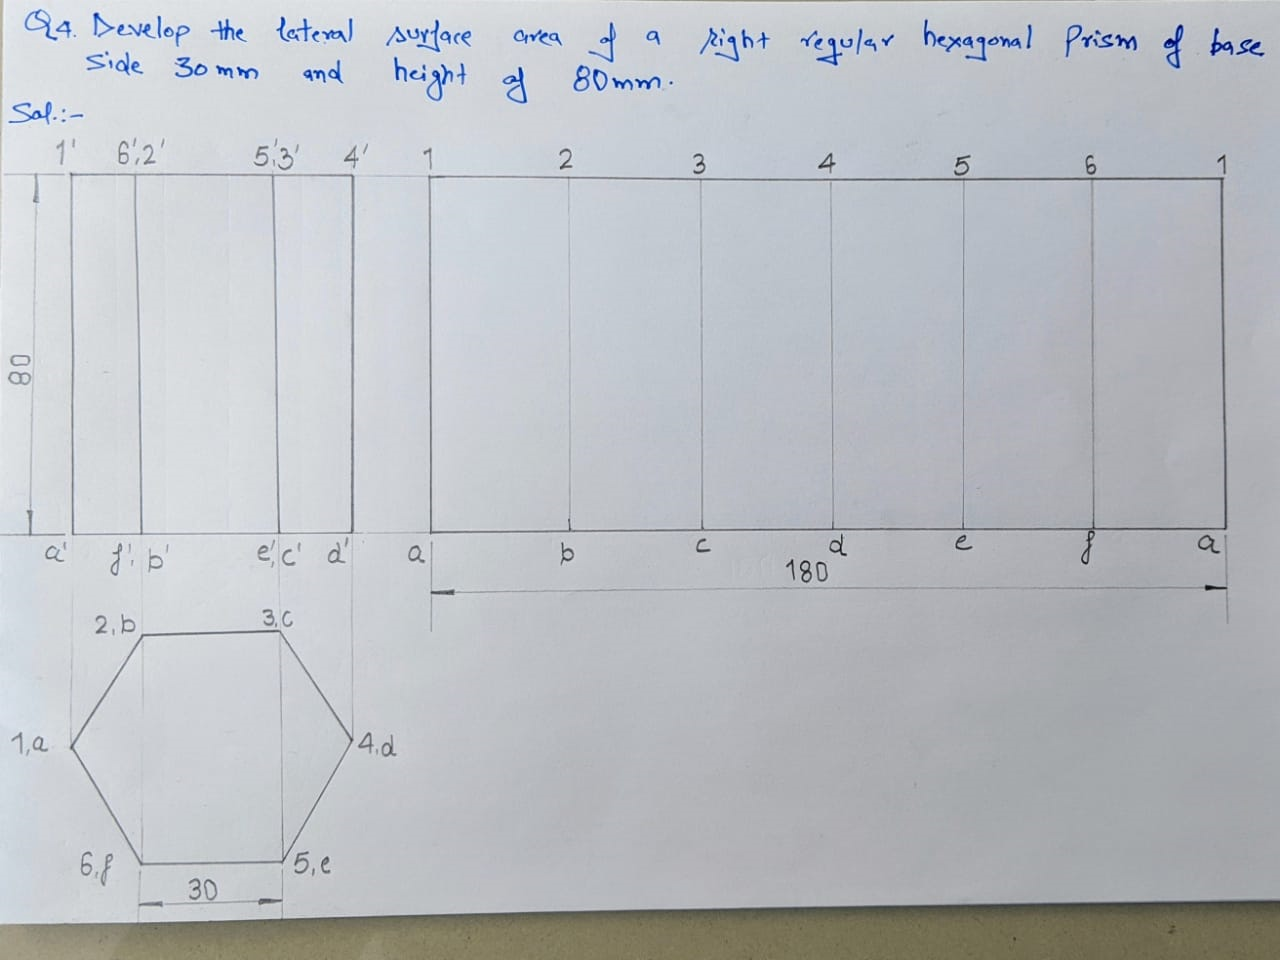 Q4. Develop the lateral surface area of a right regular hexagonal Prism of base
side 30mm and height of 80mm.
Sol.:-
1' 6',2' 5',3' 4' 1 2 3 4 5 6 1
80
a' f', b' e', c' d' a b c d e f a
180
2,b 3,c
1,a 4,d
6,f 5,e
30